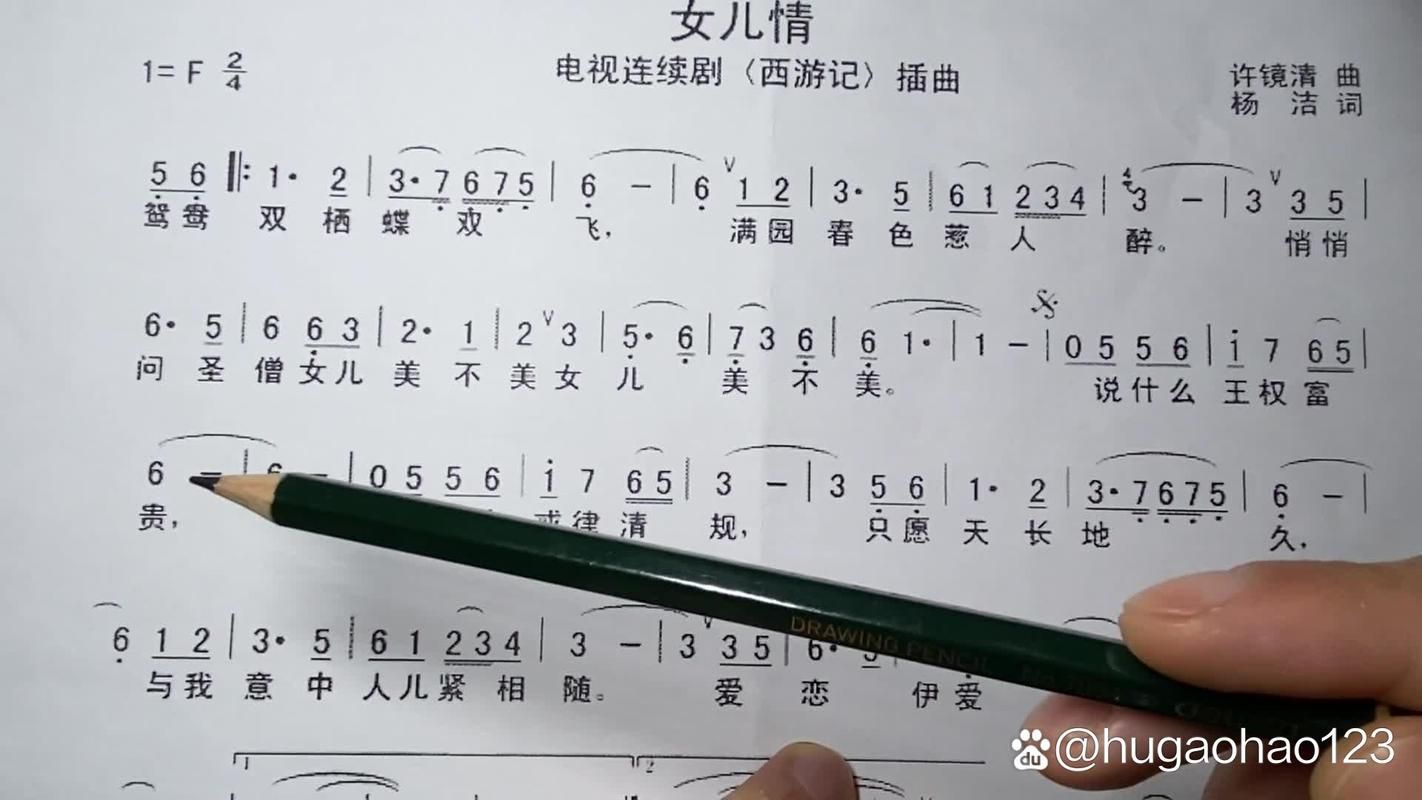 女儿情
1= F 2/4 电视连续剧〈西游记〉插曲 许镜清 曲
杨 洁 词
5 6 ‖: 1· 2 | 3·7 675 | 6 — | 6 ∨ 1 2 | 3· 5 | 6 1 234 | 4 3 — | 3 ∨ 3 5 |
鸳鸯 双 栖 蝶 双 飞, 满园 春 色 惹 人 醉。 悄悄
6· 5 | 6 6 3 | 2· 1 | 2 ∨ 3 | 5· 6 | 7 3 6 | 6 1· | 1 — | 0 5 5 6 | 1 7 65 |
问 圣 僧 女儿 美 不 美 女 儿 美 不 美。 说什么 王权 富
6 — | 6 — | 0 5 5 6 | 1 7 65 | 3 — | 3 5 6 | 1· 2 | 3·7675 | 6 — |
贵, 戒律 清 规, 只愿 天 长 地 久,
6 1 2 | 3· 5 | 6 1 234 | 3 — | 3 ∨ 3 5 | 6·
与我 意 中 人儿紧 相 随。 爱 恋 伊爱
DRAWING PENCIL
1 2
@hugaohao123